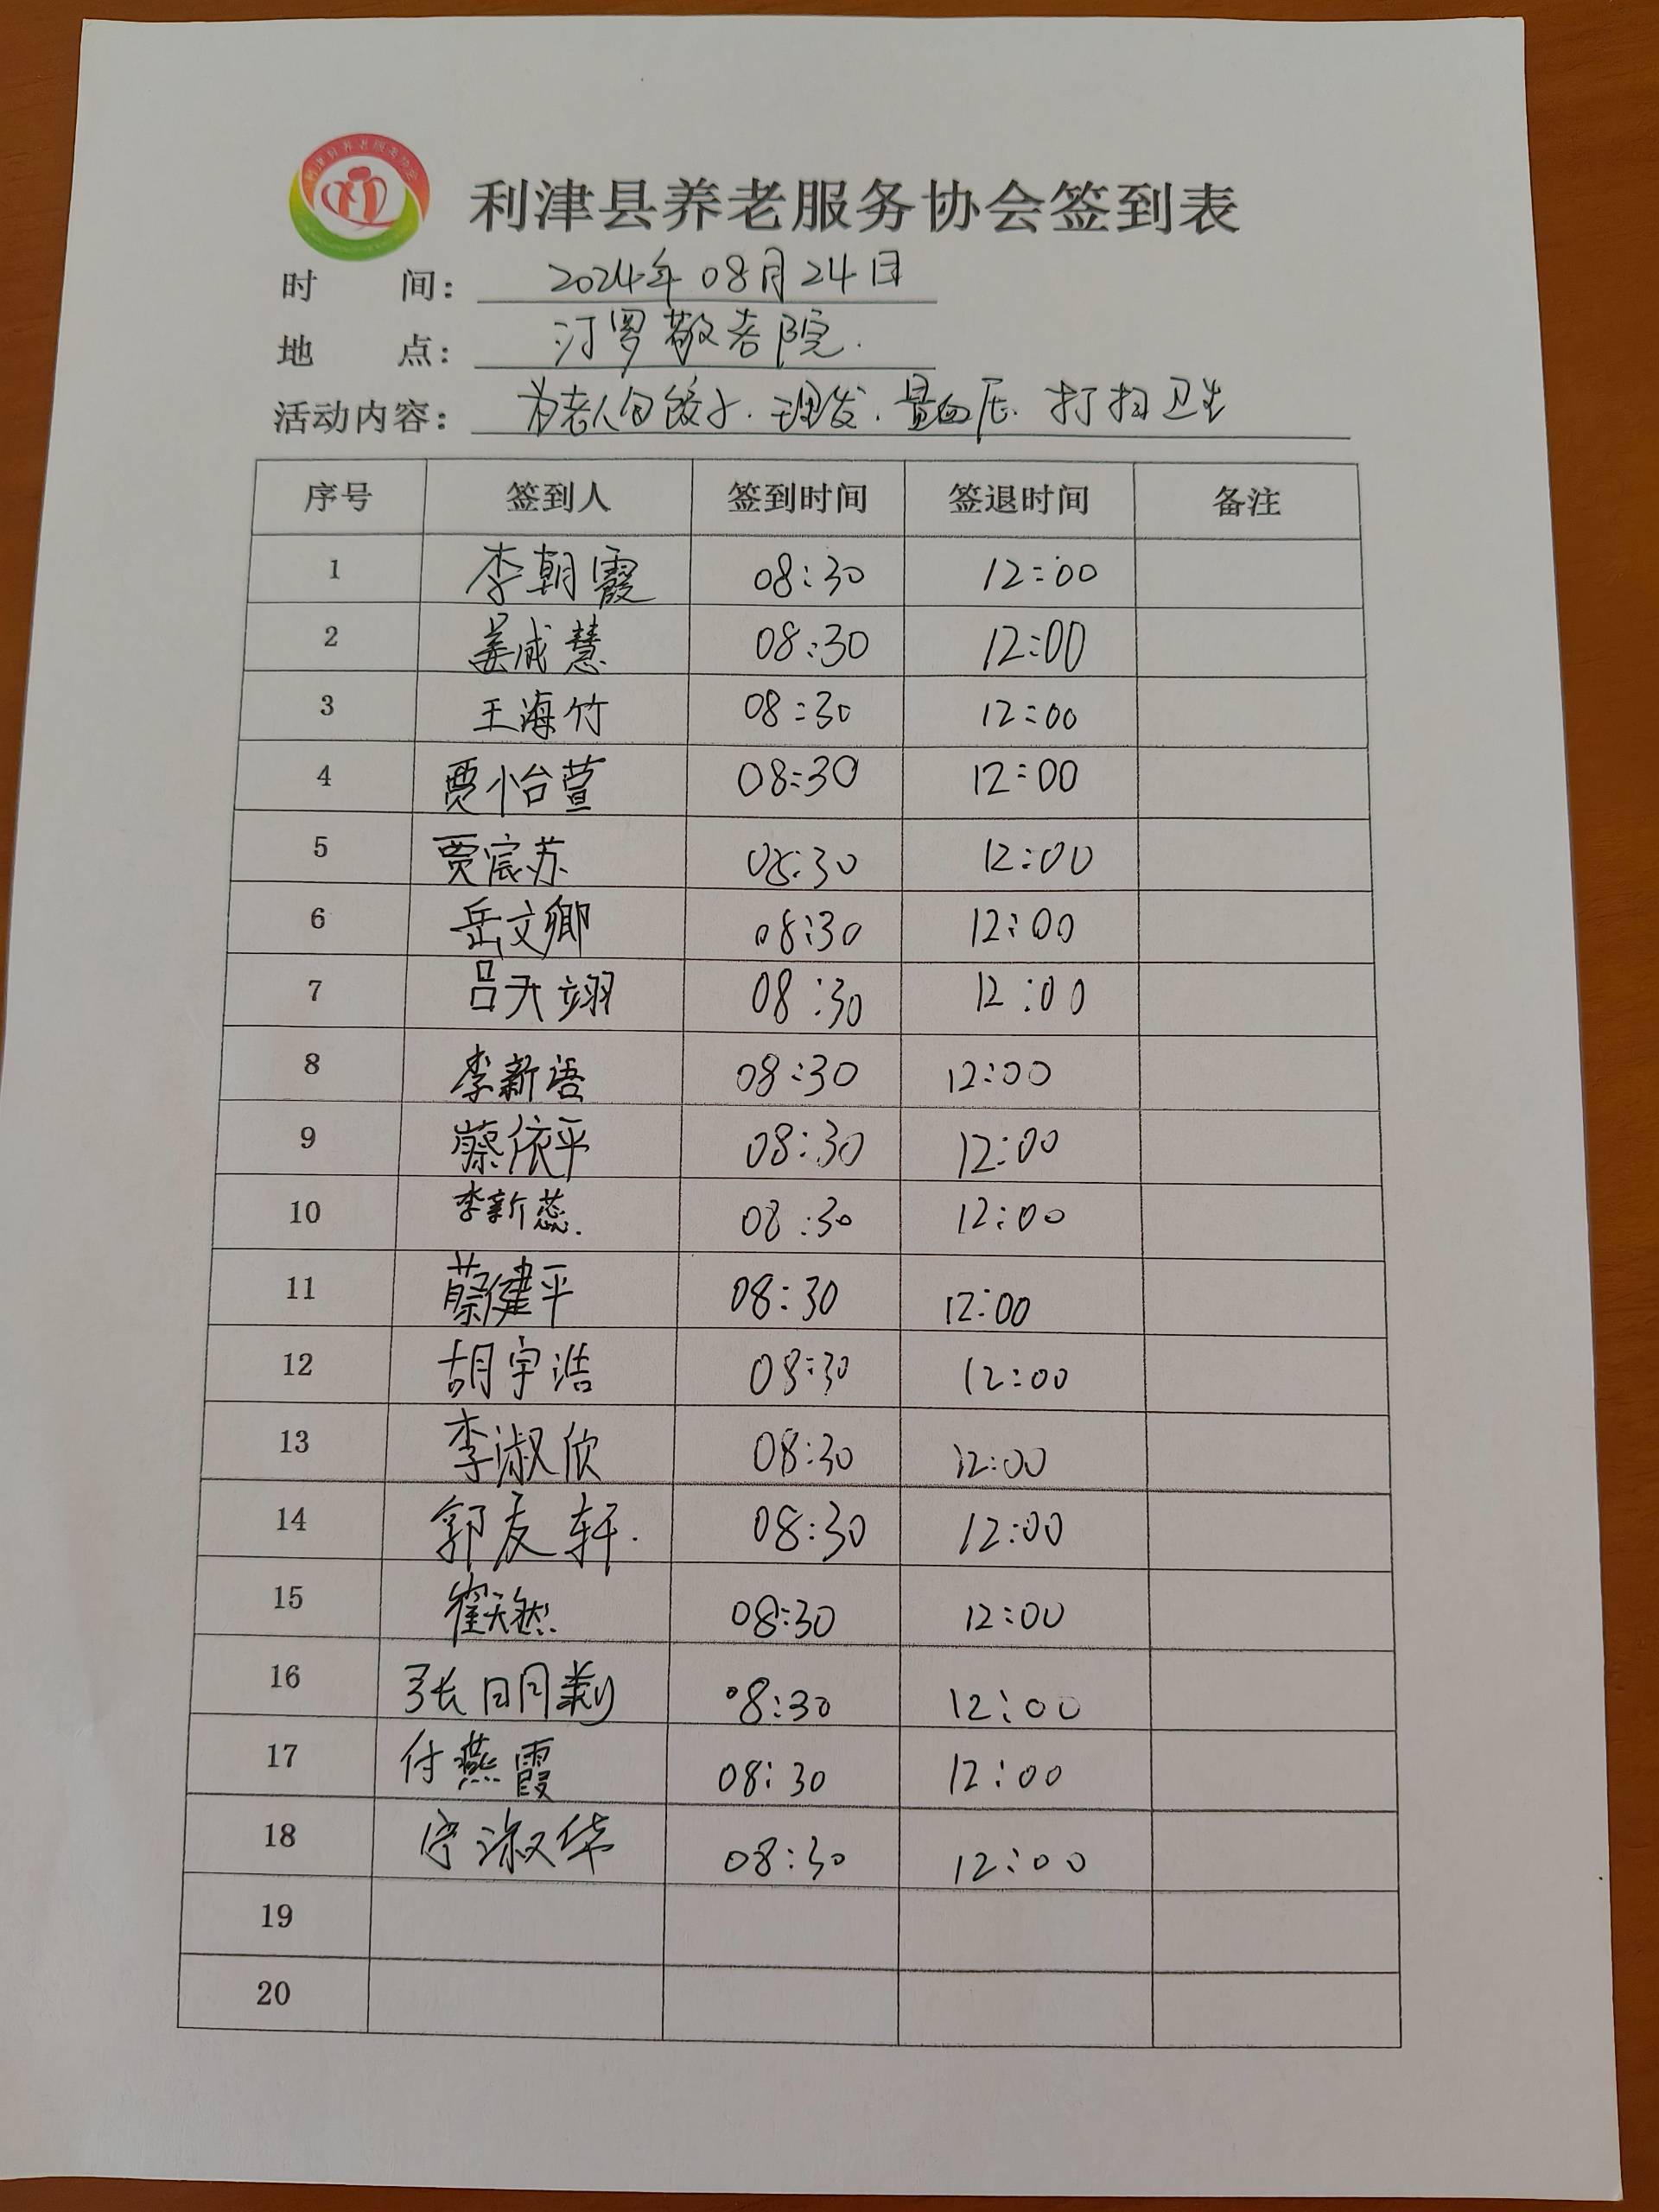 利津县养老服务协会
利津县养老服务协会签到表
时 间: 2024年08月24日
地 点: 汀罗敬老院.
活动内容: 为老人包饺子.理发.量血压.打扫卫生
序号 签到人 签到时间 签退时间 备注
1 李朝霞 08:30 12:00
2 姜咸慧 08:30 12:00
3 王海竹 08:30 12:00
4 贾怡萱 08:30 12:00
5 贾宸苏 08:30 12:00
6 岳文卿 08:30 12:00
7 吕天翊 08:30 12:00
8 李新语 08:30 12:00
9 蔡依平 08:30 12:00
10 李新蕊. 08:30 12:00
11 蔡健平 08:30 12:00
12 胡宇浩 08:30 12:00
13 李淑欣 08:30 12:00
14 郭友轩. 08:30 12:00
15 崔天然 08:30 12:00
16 张 08:30 12:00
17 付燕霞 08:30 12:00
18 淑华 08:30 12:00
19
20